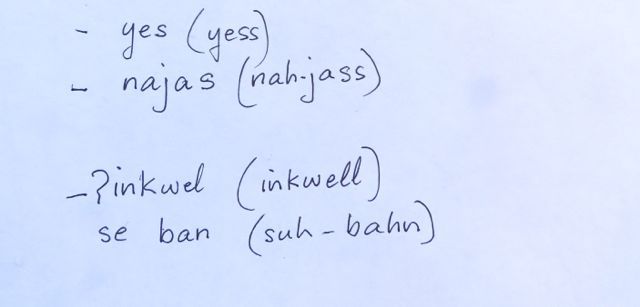 - yes (yess)
- najas (nah-jass)
-?inkwel (inkwell)
se ban (suh-bahn)